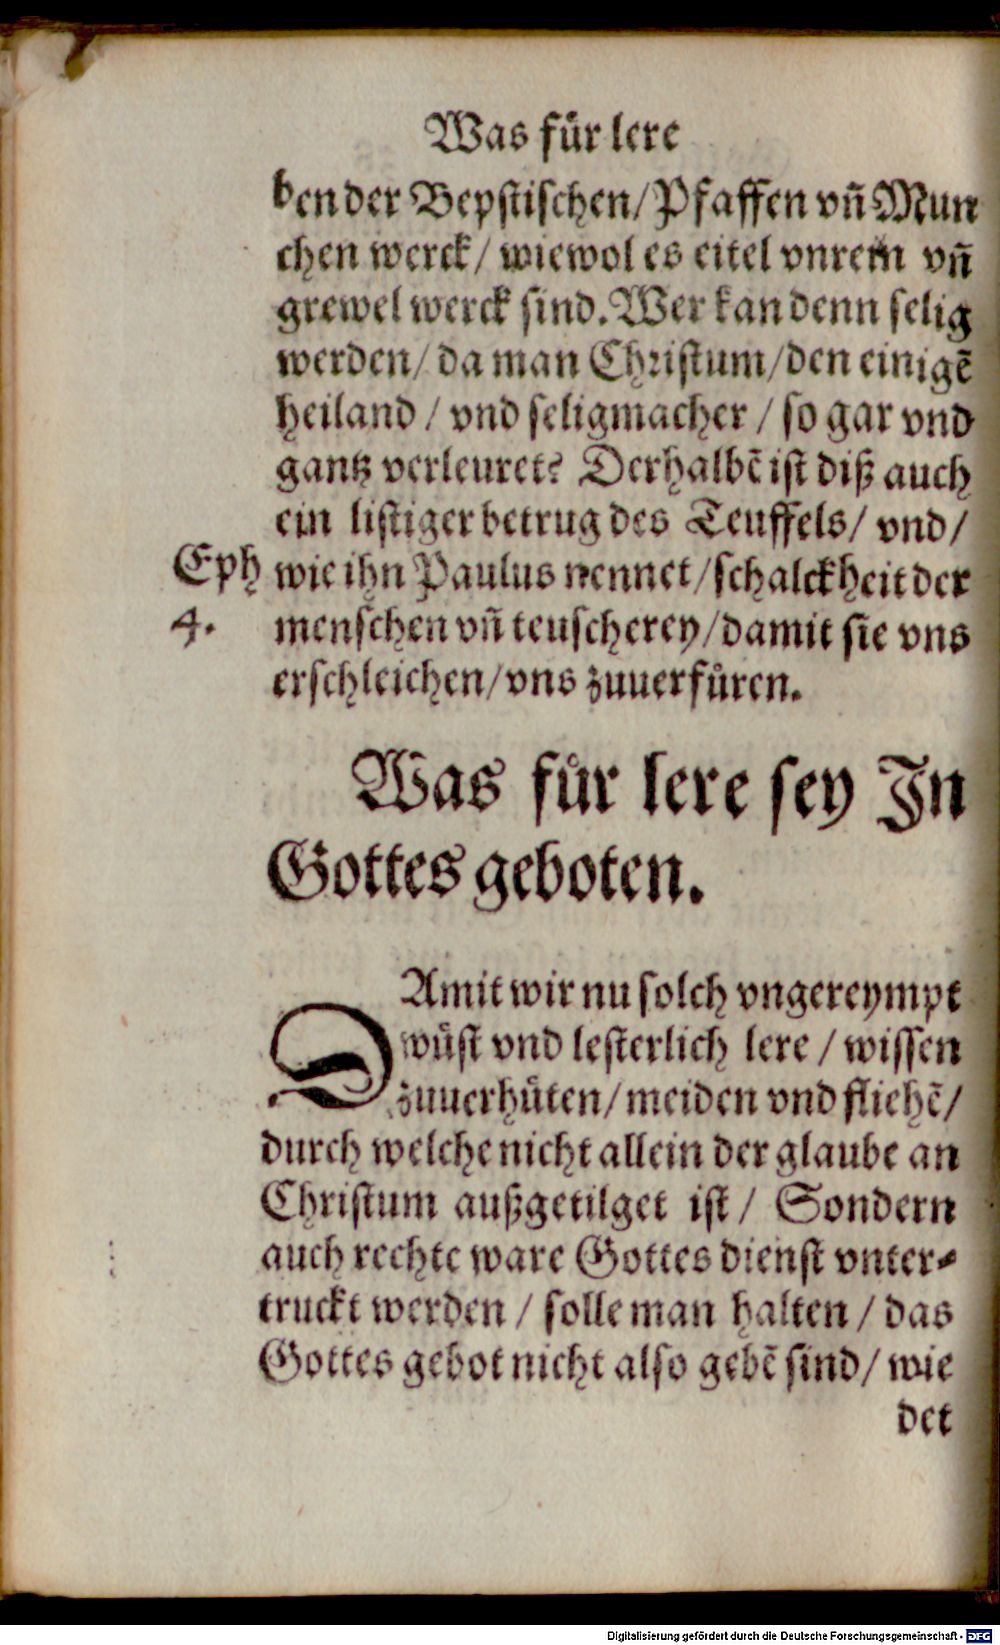 Was fůr lere
ben der Bepstischen/ Pfaffen vñ Mun
chen werck/ wiewol es eitel vnrein vñ
grewel werck sind. Wer kan denn selig
werden/ da man Christum/ den einigẽ
heiland / vnd seligmacher / so gar vnd
gantz verleuret? Derhalbẽ ist diß auch
ein listiger betrug des Teuffels/ vnd/
Eph
4.
wie ihn Paulus nennet/ schalckheit der
menschen vñ teuscherey/ damit sie vns
erschleichen/ vns zuuerfůren.
Was fůr lere sey In
Gottes geboten.
DAmit wir nu solch vngereympt
wůst vnd lesterlich lere / wissen
zuuerhůten/ meiden vnd fliehẽ/
durch welche nicht allein der glaube an
Christum außgetilget ist / Sondern
auch rechte ware Gottes dienst vnter-
truckt werden / solle man halten / das
Gottes gebot nicht also gebẽ sind/ wie
det
Digitalisierung gefördert durch die Deutsche Forschungsgemeinschaft - DFG